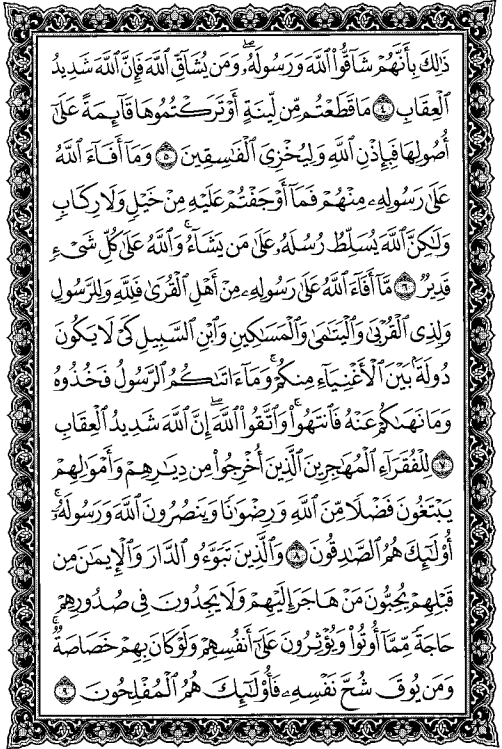 ذَٰلِكَ بِأَنَّهُمْ شَآقُّوا۟ ٱللَّهَ وَرَسُولَهُۥ ۖ وَمَن يُشَآقِّ ٱللَّهَ فَإِنَّ ٱللَّهَ شَدِيدُ
ٱلْعِقَابِ ٤ مَا قَطَعْتُم مِّن لِّينَةٍ أَوْ تَرَكْتُمُوهَا قَآئِمَةً عَلَىٰٓ
أُصُولِهَا فَبِإِذْنِ ٱللَّهِ وَلِيُخْزِىَ ٱلْفَـٰسِقِينَ ٥ وَمَآ أَفَآءَ ٱللَّهُ
عَلَىٰ رَسُولِهِۦ مِنْهُمْ فَمَآ أَوْجَفْتُمْ عَلَيْهِ مِنْ خَيْلٍ وَلَا رِكَابٍ
وَلَـٰكِنَّ ٱللَّهَ يُسَلِّطُ رُسُلَهُۥ عَلَىٰ مَن يَشَآءُ ۚ وَٱللَّهُ عَلَىٰ كُلِّ شَىْءٍ
قَدِيرٌ ٦ مَّآ أَفَآءَ ٱللَّهُ عَلَىٰ رَسُولِهِۦ مِنْ أَهْلِ ٱلْقُرَىٰ فَلِلَّهِ وَلِلرَّسُولِ
وَلِذِى ٱلْقُرْبَىٰ وَٱلْيَتَـٰمَىٰ وَٱلْمَسَـٰكِينِ وَٱبْنِ ٱلسَّبِيلِ كَىْ لَا يَكُونَ
دُولَةًۢ بَيْنَ ٱلْأَغْنِيَآءِ مِنكُمْ ۚ وَمَآ ءَاتَىٰكُمُ ٱلرَّسُولُ فَخُذُوهُ
وَمَا نَهَىٰكُمْ عَنْهُ فَٱنتَهُوا۟ ۚ وَٱتَّقُوا۟ ٱللَّهَ ۖ إِنَّ ٱللَّهَ شَدِيدُ ٱلْعِقَابِ
٧ لِلْفُقَرَآءِ ٱلْمُهَـٰجِرِينَ ٱلَّذِينَ أُخْرِجُوا۟ مِن دِيَـٰرِهِمْ وَأَمْوَٰلِهِمْ
يَبْتَغُونَ فَضْلًا مِّنَ ٱللَّهِ وَرِضْوَٰنًا وَيَنصُرُونَ ٱللَّهَ وَرَسُولَهُۥٓ ۚ
أُو۟لَـٰٓئِكَ هُمُ ٱلصَّـٰدِقُونَ ٨ وَٱلَّذِينَ تَبَوَّءُو ٱلدَّارَ وَٱلْإِيمَـٰنَ مِن
قَبْلِهِمْ يُحِبُّونَ مَنْ هَاجَرَ إِلَيْهِمْ وَلَا يَجِدُونَ فِى صُدُورِهِمْ
حَاجَةً مِّمَّآ أُوتُوا۟ وَيُؤْثِرُونَ عَلَىٰٓ أَنفُسِهِمْ وَلَوْ كَانَ بِهِمْ خَصَاصَةٌ ۚ
وَمَن يُوقَ شُحَّ نَفْسِهِۦ فَأُو۟لَـٰٓئِكَ هُمُ ٱلْمُفْلِحُونَ ٩